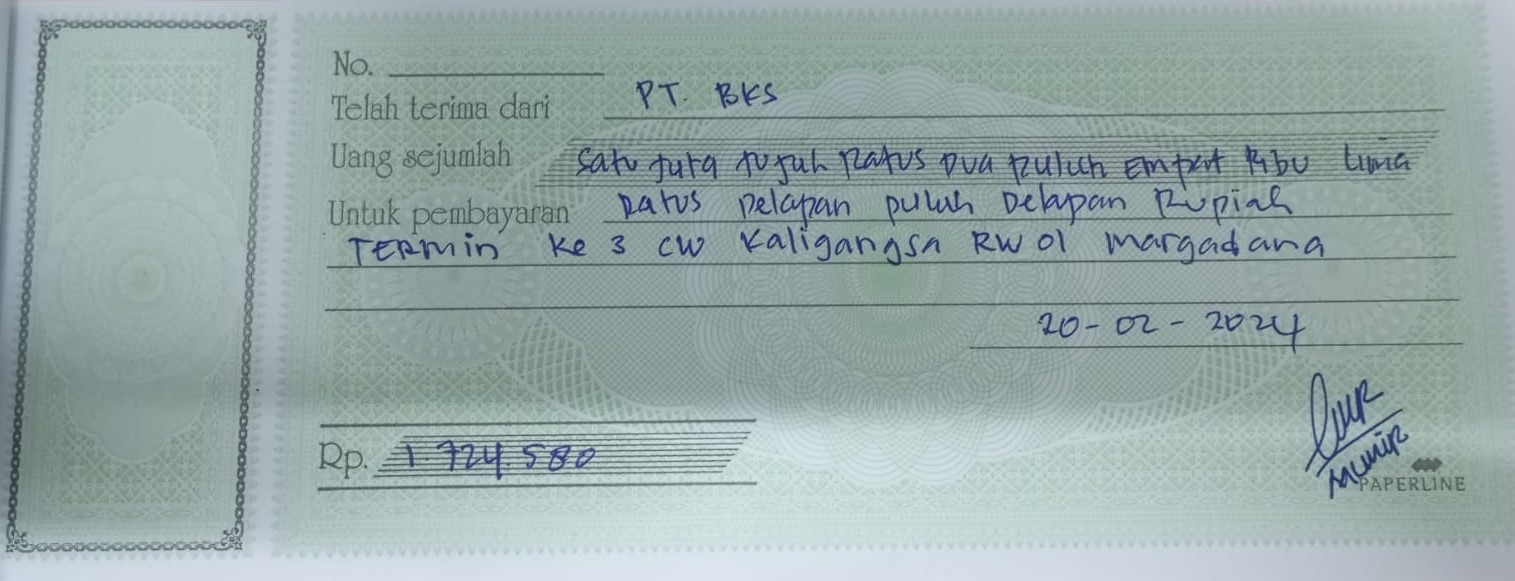 No.
Telah terima dari PT. BKS
Uang sejumlah Satu juta tujuh Ratus Dua puluh Empat Ribu lima
Untuk pembayaran Ratus Delapan puluh Delapan Rupiah
TERMin ke 3 CW Kaligangsa RW 01 Margadana
20-02-2024
Rp. 1.724.580
Munir
PAPERLINE